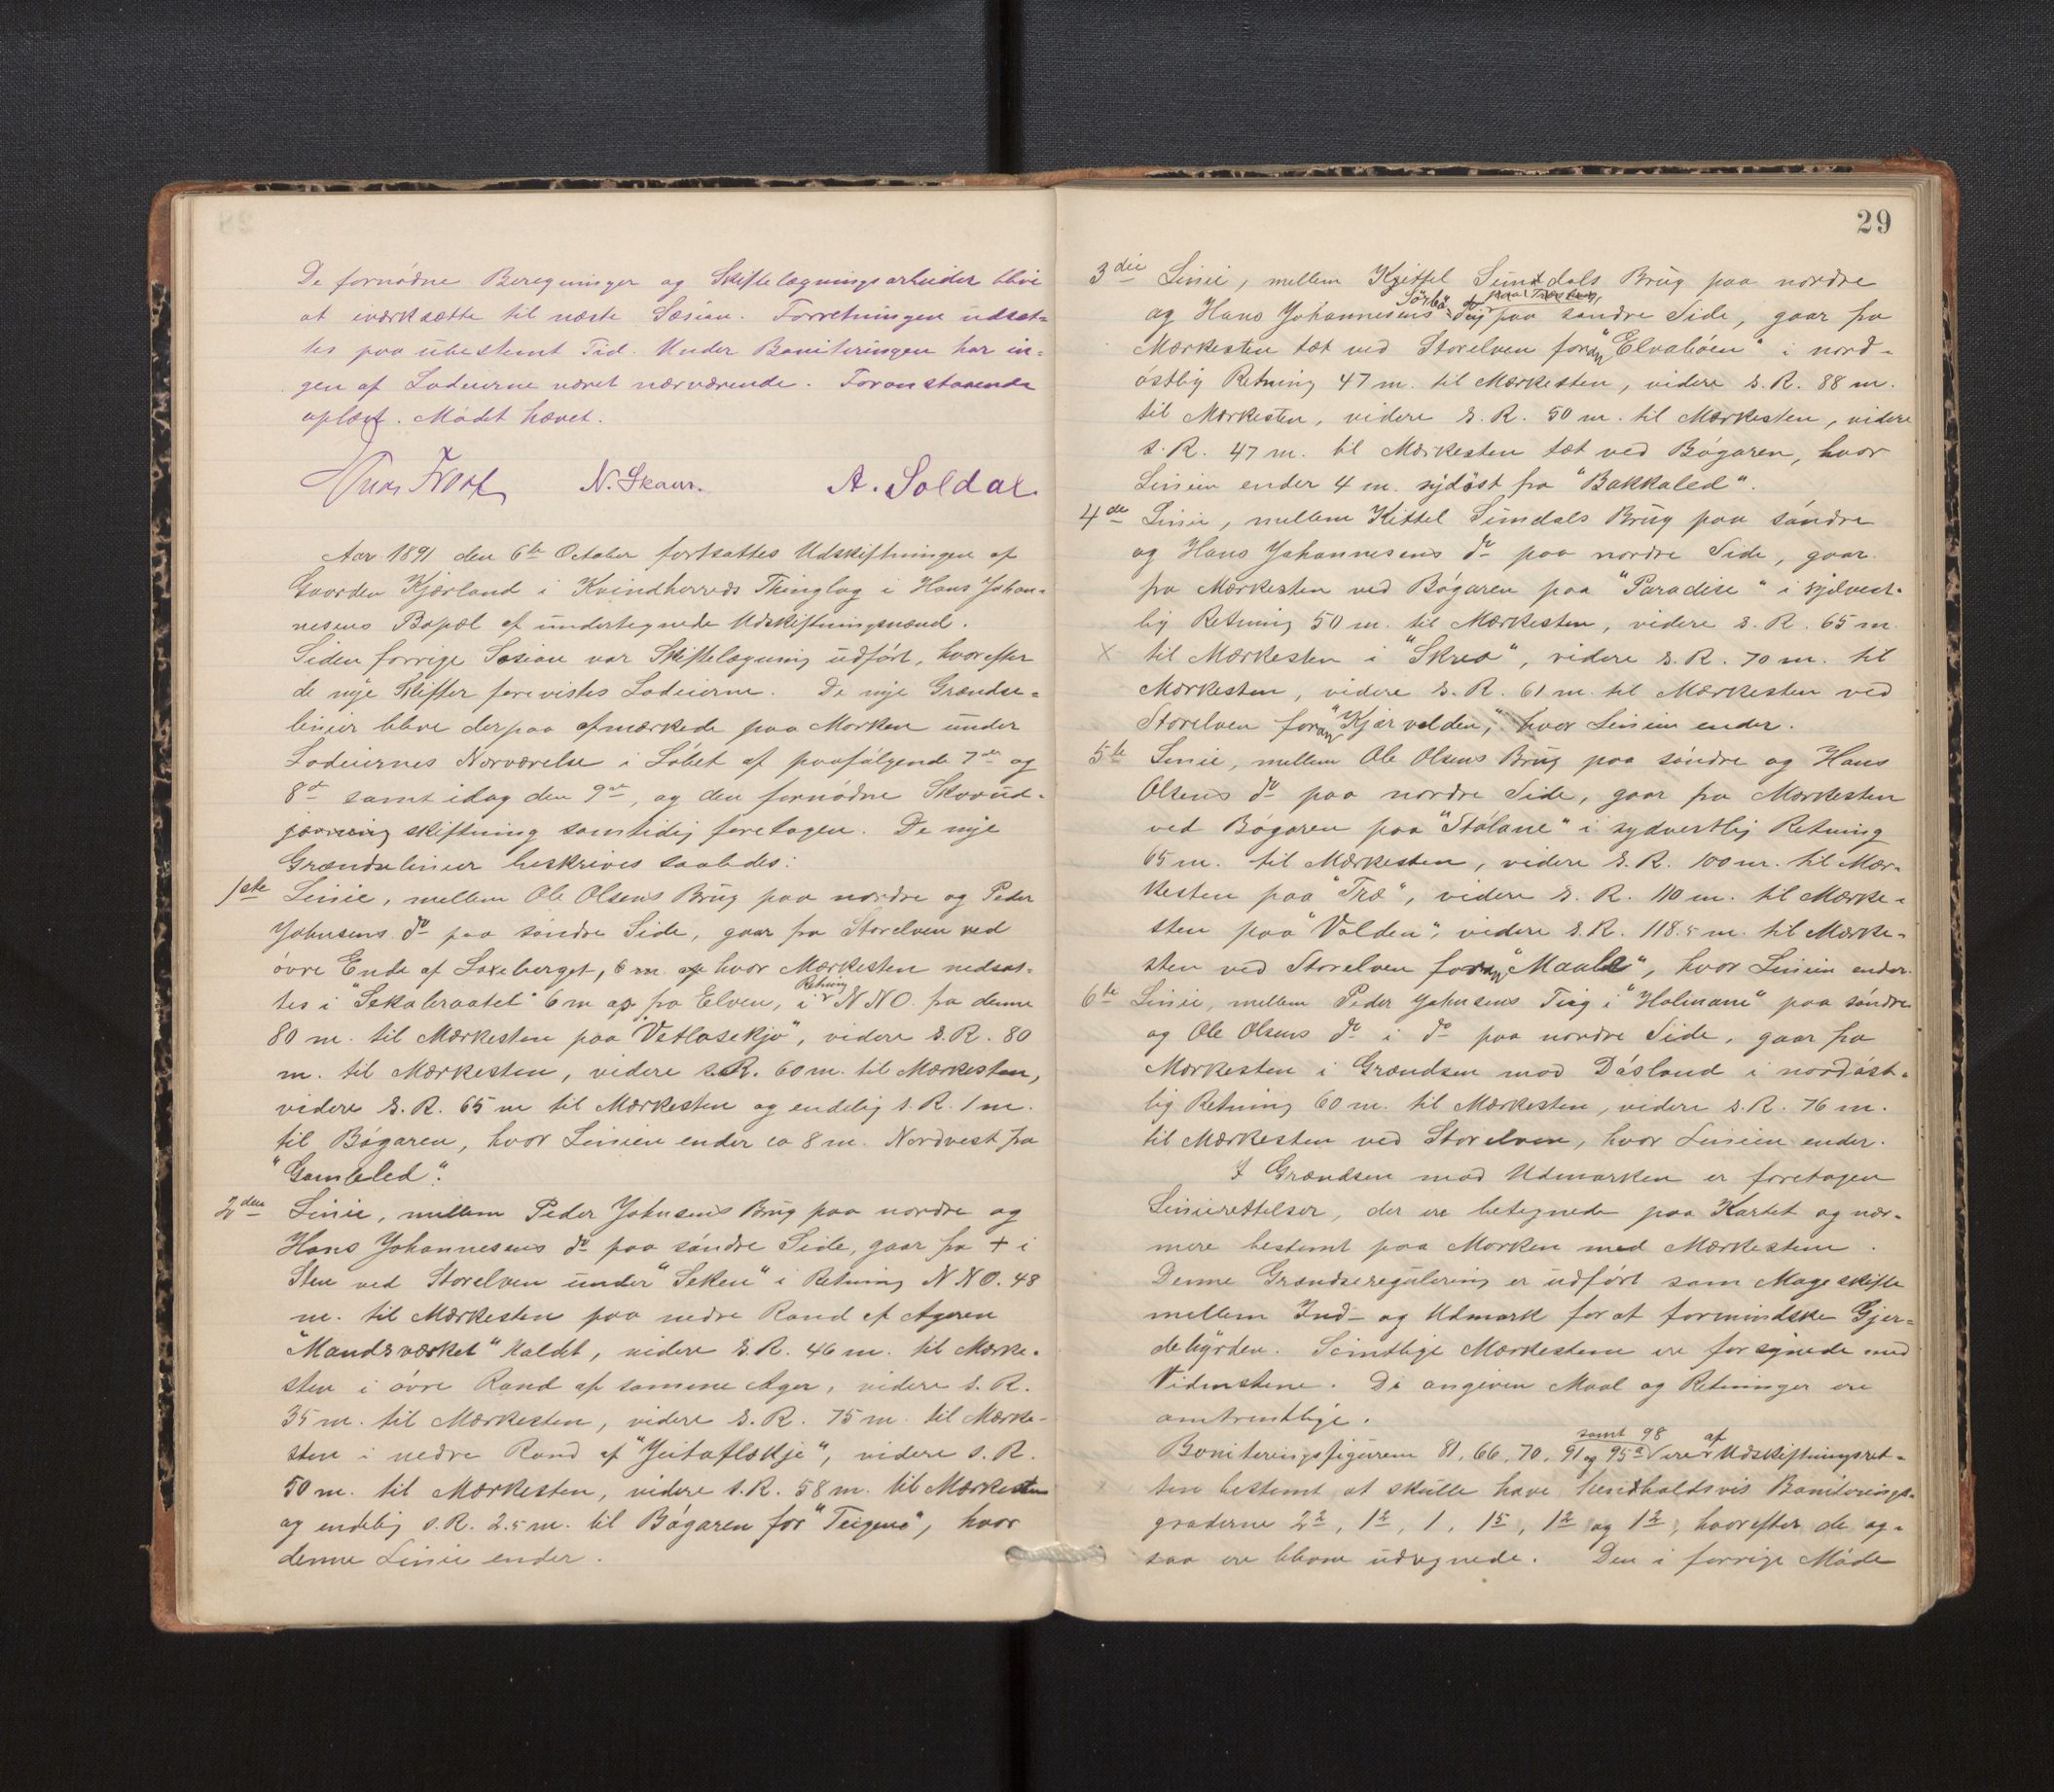 De fornödne Beregninger og Skiftelægningsarbeider blive
at iværksætte til næste Sæsion. Forretningen udsæt-
tes paa ubestemt Tid. Under Boniteringen har in-
gen af Lodeierne været nærværende. Foranstaaende
oplæst. Mödet hævet.
N. Skaar. A. Soldal
Aar 1891 den 6te October fortsattes Udskiftningen af
Gaarden Kjærland i Kvindherreds Thinglag i Hans Johan-
nesens Bopæl af undertegnede Udskiftningsmænd.
Siden forrige Sæsion var Skiftelægning udfört, hvorefter
de nye Skifter forevistes Lodeierne. De nye Grændse-
linier bleve derpaa afmærkede paa Marken under
Lodeiernes Nærværelse i Löbet af paafölgende 7de og
8de samt idag den 9de, og den fornödne Skovud-
skiftning samtidig foretagen. De nye
Grændselinier beskrives saaledes:
1ste Linie, mellem Ole Olsens Brug paa nordre og Peder
Johnsens do paa söndre Side, gaar fra Storelven ved
övre Ende af Laxeberget, 6 m. op hvor Mærkesten nedsæt-
tes i "Sekaleraatet" 6 m op fra Elven, i Retning NNO. fra denne
80 m. til Mærkesten paa "Vetlasekjo", videre s. R. 80
m. til Mærkesten, videre s.R. 60 m. til Mærkesten,
videre s. R. 65 m til Mærkesten og endelig s. R. 1 m.
til Bögaren, hvor Linien ender ca 8 m. Nordvest fra
"Gamleled".
2den Linie, mellem Peder Johnsens Brug paa nordre og
Hans Johannesens do paa söndre Side, gaar fra + i
Sten ved Storelven under "Seken" i Retning NNO. 48
m. til Mærkesten paa nedre Rand af Ageren
"Mandsværket" kaldet, videre s.R. 46 m. til Mærke-
sten i övre Rand af samme Ager, videre s. R.
35 m. til Mærkesten, videre s. R. 75 m. til Mærke-
sten i nedre Rand af "Geitaflækje", videre s. R.
50 m. til Mærkesten, videre s.R. 58 m. til Mærkesten
og endelig s. R. 2.5 m. til Bögaren for "Teigene", hvor
denne Linie ender.
29
3die Linie, mellem Kjettel Sundals Brug paa nordre
og Hans Johannesens Teig paa söndre Side, gaar fra
Mærkesten tæt ved Storelven foran "Elvalöen" i nord-
östlig Retning 47 m. til Mærkesten, videre s. R. 88 m.
til Mærkesten, videre s. R. 50 m. til Mærkesten, videre
s. R. 47 m. til Mærkesten tæt ved Bögaren, hvor
Linien ender 4 m. sydöst fra "Bakkaled".
4de Linie, mellem Kittel Sundals Brug paa söndre
og Hans Johannesens do paa nordre Side, gaar
fra Mærkesten ved Bögaren paa "Paradise" i sydvest-
lig Retning 50 m. til Mærkesten, videre s. R. 65 m.
× til Mærkesten i "Skrea", videre s. R. 70 m. til
Mærkesten, videre s. R. 61 m. til Mærkesten ved
Storelven foran "Kjærvolden", hvor Linien ender.
5te Linie, mellem Ole Olsens Brug paa söndre og Hans
Olsens do paa nordre Side, gaar fra Mærkesten
ved Bögaren paa "Stölane" i sydvestlig Retning
65 m. til Mærkesten, videre s. R. 100 m. til Mær-
kesten paa "Træ", videre s. R. 110 m. til Mærke-
sten paa "Volden", videre s.R. 118.5 m. til Mærke-
sten ved Storelven foran "Maale", hvor Linien ender.
6te Linie, mellem Peder Johnsens Teig i "Holmane" paa söndre
og Ole Olsens do i do paa nordre Side, gaar fra
Mærkesten i Grændsen mod Dösland i nordöst-
lig Retning 60 m. til Mærkesten, videre s. R. 76 m.
til Mærkesten ved Storelven, hvor Linien ender.
I Grændsen mod Udmarken er foretagen
Linierettelser, der ere betegnede paa Kartet og nær-
mere bestemt paa Marken med Mærkestene.
Denne Grændseregulering er udfört som Mageskifte
mellem Ind- og Udmark for at formindske Gjer-
debyrden. Samtlige Mærkestene ere forsynede med
Vidnestene. De angivne Maal og Retninger ere
omtrentlige.
samt 98 af
Boniteringsfigurene 81, 66, 70, 91 og 95a ere Udskiftningsret-
ten bestemt at skulle have henholdsvis Boniterings-
graderne 2 2, 1 2, 1, 1 5, 1 2 og 1 2, hvorefter de og-
saa ere blevne udregnede. Den i forrige Möde